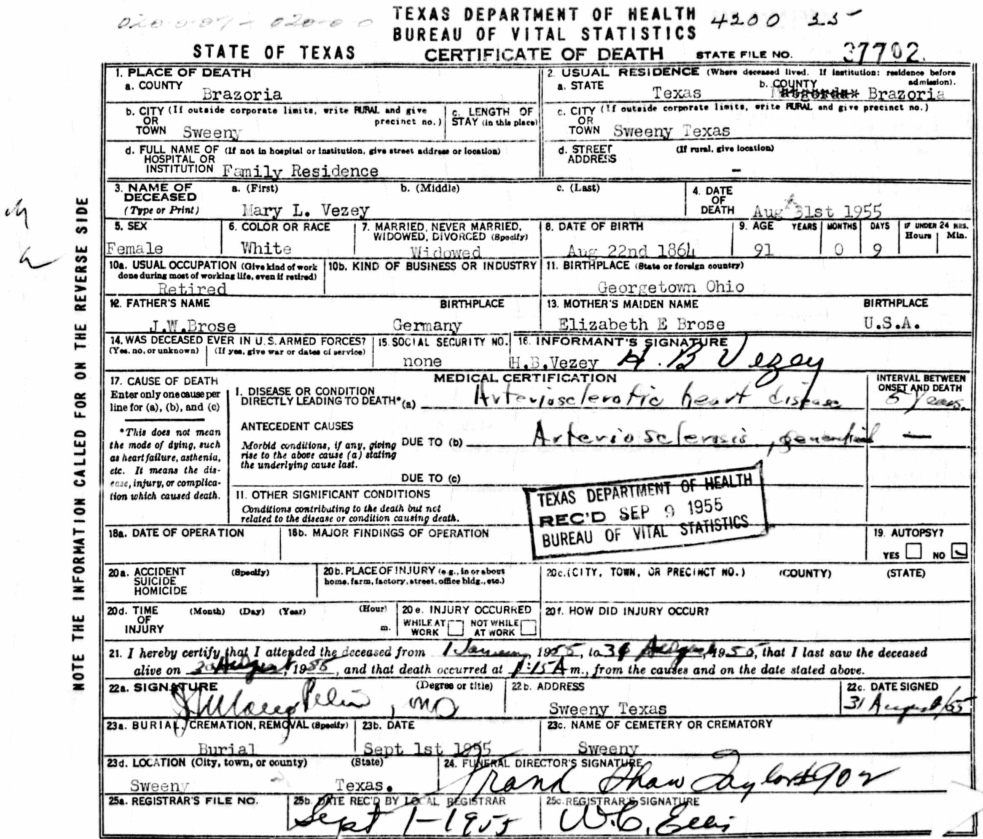 TEXAS DEPARTMENT OF HEALTH 4200
BUREAU OF VITAL STATISTICS
STATE OF TEXAS CERTIFICATE OF DEATH STATE FILE NO. 37702
NOTE THE INFORMATION CALLED FOR ON THE REVERSE SIDE
1. PLACE OF DEATH
a. COUNTY Brazoria
2. USUAL RESIDENCE (Where deceased lived. If institution: residence before admission).
a. STATE Texas b. COUNTY Brazoria
b. CITY (If outside corporate limits, write RURAL and give precinct no.)
OR TOWN Sweeny
c. LENGTH OF STAY (in this place)
c. CITY (If outside corporate limits, write RURAL and give precinct no.)
OR TOWN Sweeny Texas
d. FULL NAME OF (If not in hospital or institution, give street address or location)
HOSPITAL OR INSTITUTION Family Residence
d. STREET ADDRESS (If rural, give location) -
3. NAME OF DECEASED (Type or Print) a. (First) b. (Middle) c. (Last)
Mary L. Vezey
4. DATE OF DEATH Aug 31st 1955
5. SEX Female
6. COLOR OR RACE White
7. MARRIED, NEVER MARRIED, WIDOWED, DIVORCED (Specify) Widowed
8. DATE OF BIRTH Aug 22nd 1864
9. AGE YEARS MONTHS DAYS IF UNDER 24 HRS. Hours Min.
91 0 9
10a. USUAL OCCUPATION (Give kind of work done during most of working life, even if retired) Retired
10b. KIND OF BUSINESS OR INDUSTRY
11. BIRTHPLACE (State or foreign country) Georgetown Ohio
12. FATHER'S NAME BIRTHPLACE
J.W.Brose Germany
13. MOTHER'S MAIDEN NAME BIRTHPLACE
Elizabeth E Brose U.S.A.
14. WAS DECEASED EVER IN U.S. ARMED FORCES?
(Yes, no, or unknown) (If yes, give war or dates of service)
15. SOCIAL SECURITY NO. none
16. INFORMANT'S SIGNATURE
H.B.Vezey H. B Vezey
17. CAUSE OF DEATH
Enter only one cause per line for (a), (b), and (c)
*This does not mean the mode of dying, such as heart failure, asthenia, etc. It means the disease, injury, or complication which caused death.
MEDICAL CERTIFICATION
INTERVAL BETWEEN ONSET AND DEATH
I. DISEASE OR CONDITION DIRECTLY LEADING TO DEATH* (a) Arteriosclerotic heart disease 5 Years.
ANTECEDENT CAUSES
Morbid conditions, if any, giving rise to the above cause (a) stating the underlying cause last.
DUE TO (b) Arteriosclerosis, —
DUE TO (c)
II. OTHER SIGNIFICANT CONDITIONS
Conditions contributing to the death but not related to the disease or condition causing death.
TEXAS DEPARTMENT OF HEALTH
REC'D SEP 9 1955
BUREAU OF VITAL STATISTICS
18a. DATE OF OPERATION
18b. MAJOR FINDINGS OF OPERATION
19. AUTOPSY?
YES NO
20a. ACCIDENT SUICIDE HOMICIDE (Specify)
20b. PLACE OF INJURY (e.g., in or about home, farm, factory, street, office bldg., etc.)
20c. (CITY, TOWN, OR PRECINCT NO.) (COUNTY) (STATE)
20d. TIME OF INJURY (Month) (Day) (Year) (Hour) m.
20e. INJURY OCCURRED
WHILE AT WORK NOT WHILE AT WORK
20f. HOW DID INJURY OCCUR?
21. I hereby certify that I attended the deceased from 1955, to August, 1955, that I last saw the deceased
alive on August, 1955, and that death occurred at 1:15 A m., from the causes and on the date stated above.
22a. SIGNATURE (Degree or title) MD
22b. ADDRESS Sweeny Texas
22c. DATE SIGNED 31 August/55
23a. BURIAL, CREMATION, REMOVAL (Specify) Burial
23b. DATE Sept 1st 1955
23c. NAME OF CEMETERY OR CREMATORY Sweeny
23d. LOCATION (City, town, or county) (State)
Sweeny Texas.
24. FUNERAL DIRECTOR'S SIGNATURE
25a. REGISTRAR'S FILE NO.
25b. DATE REC'D BY LOCAL REGISTRAR Sept 1-1955
25c. REGISTRAR'S SIGNATURE W.C. Ellis